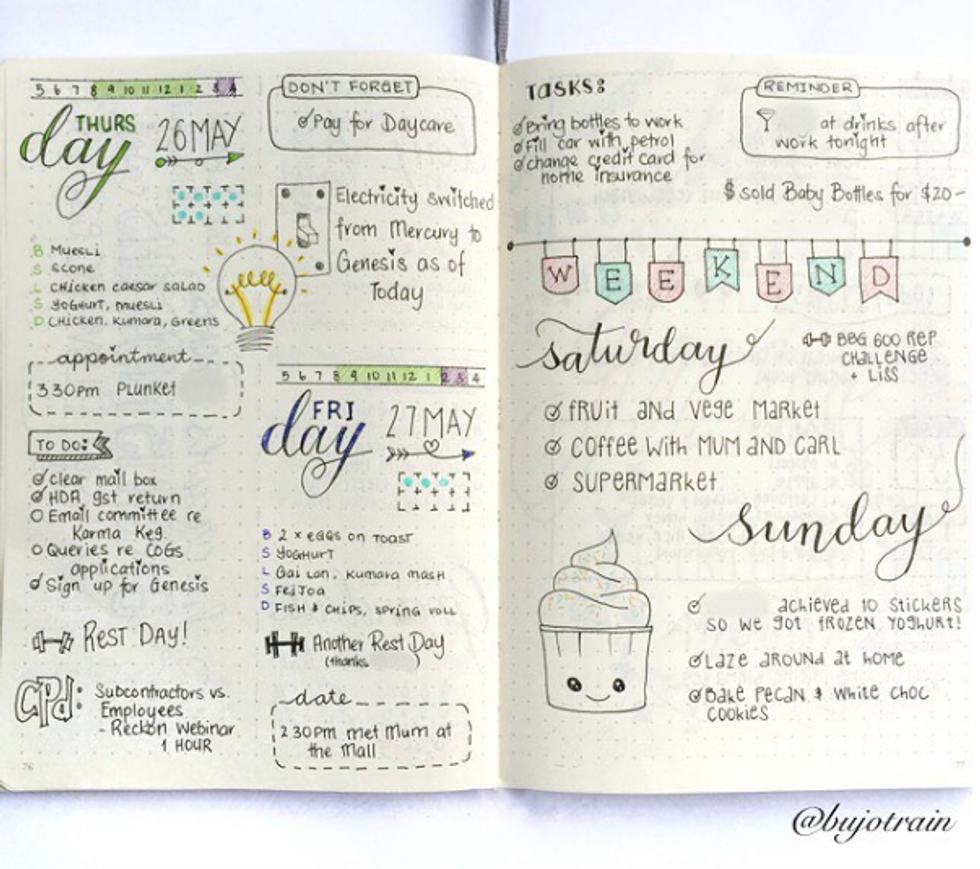 5 6 7 8 9 10 11 12 1 2 3 4
THURS
day
26 MAY
B Muesli
S Scone
L Chicken caesar salad
S Yoghurt, muesli
D Chicken, Kumara, Greens
appointment
3 30pm Plunket
TO DO:
Clear mail box
gst return
Email committee re
Karma Keg.
Queries re COGS
applications
Sign up for Genesis
Rest Day!
CPd:
Subcontractors vs.
Employees
- Reckon Webinar
1 HOUR
76
DON'T FORGET
Pay for Daycare
Electricity switched
from Mercury to
Genesis as of
Today
5 6 7 8 9 10 11 12 1 2 3 4
FRI
day
27 MAY
B 2 x eggs on Toast
S Yoghurt
L Gai Lan, Kumara mash
S Feijoa
D Fish & Chips, spring roll
Another Rest Day
(thanks )
date
2 30pm met Mum at
the Mall
TASKS:
Bring bottles to work
Fill car with petrol
change credit card for
home insurance
REMINDER
at drinks after
work tonight
$ sold Baby Bottles for $20-
WEEKEND
saturday
BBG 600 REP
CHALLENGE
+ LISS
fruit and vege market
Coffee with MUM AND CARL
SUPERMARKET
sunday
achieved 10 stickers
so we got frozen yoghurt!
Laze around at home
Bake Pecan & White choc
cookies
77
@bujotrain